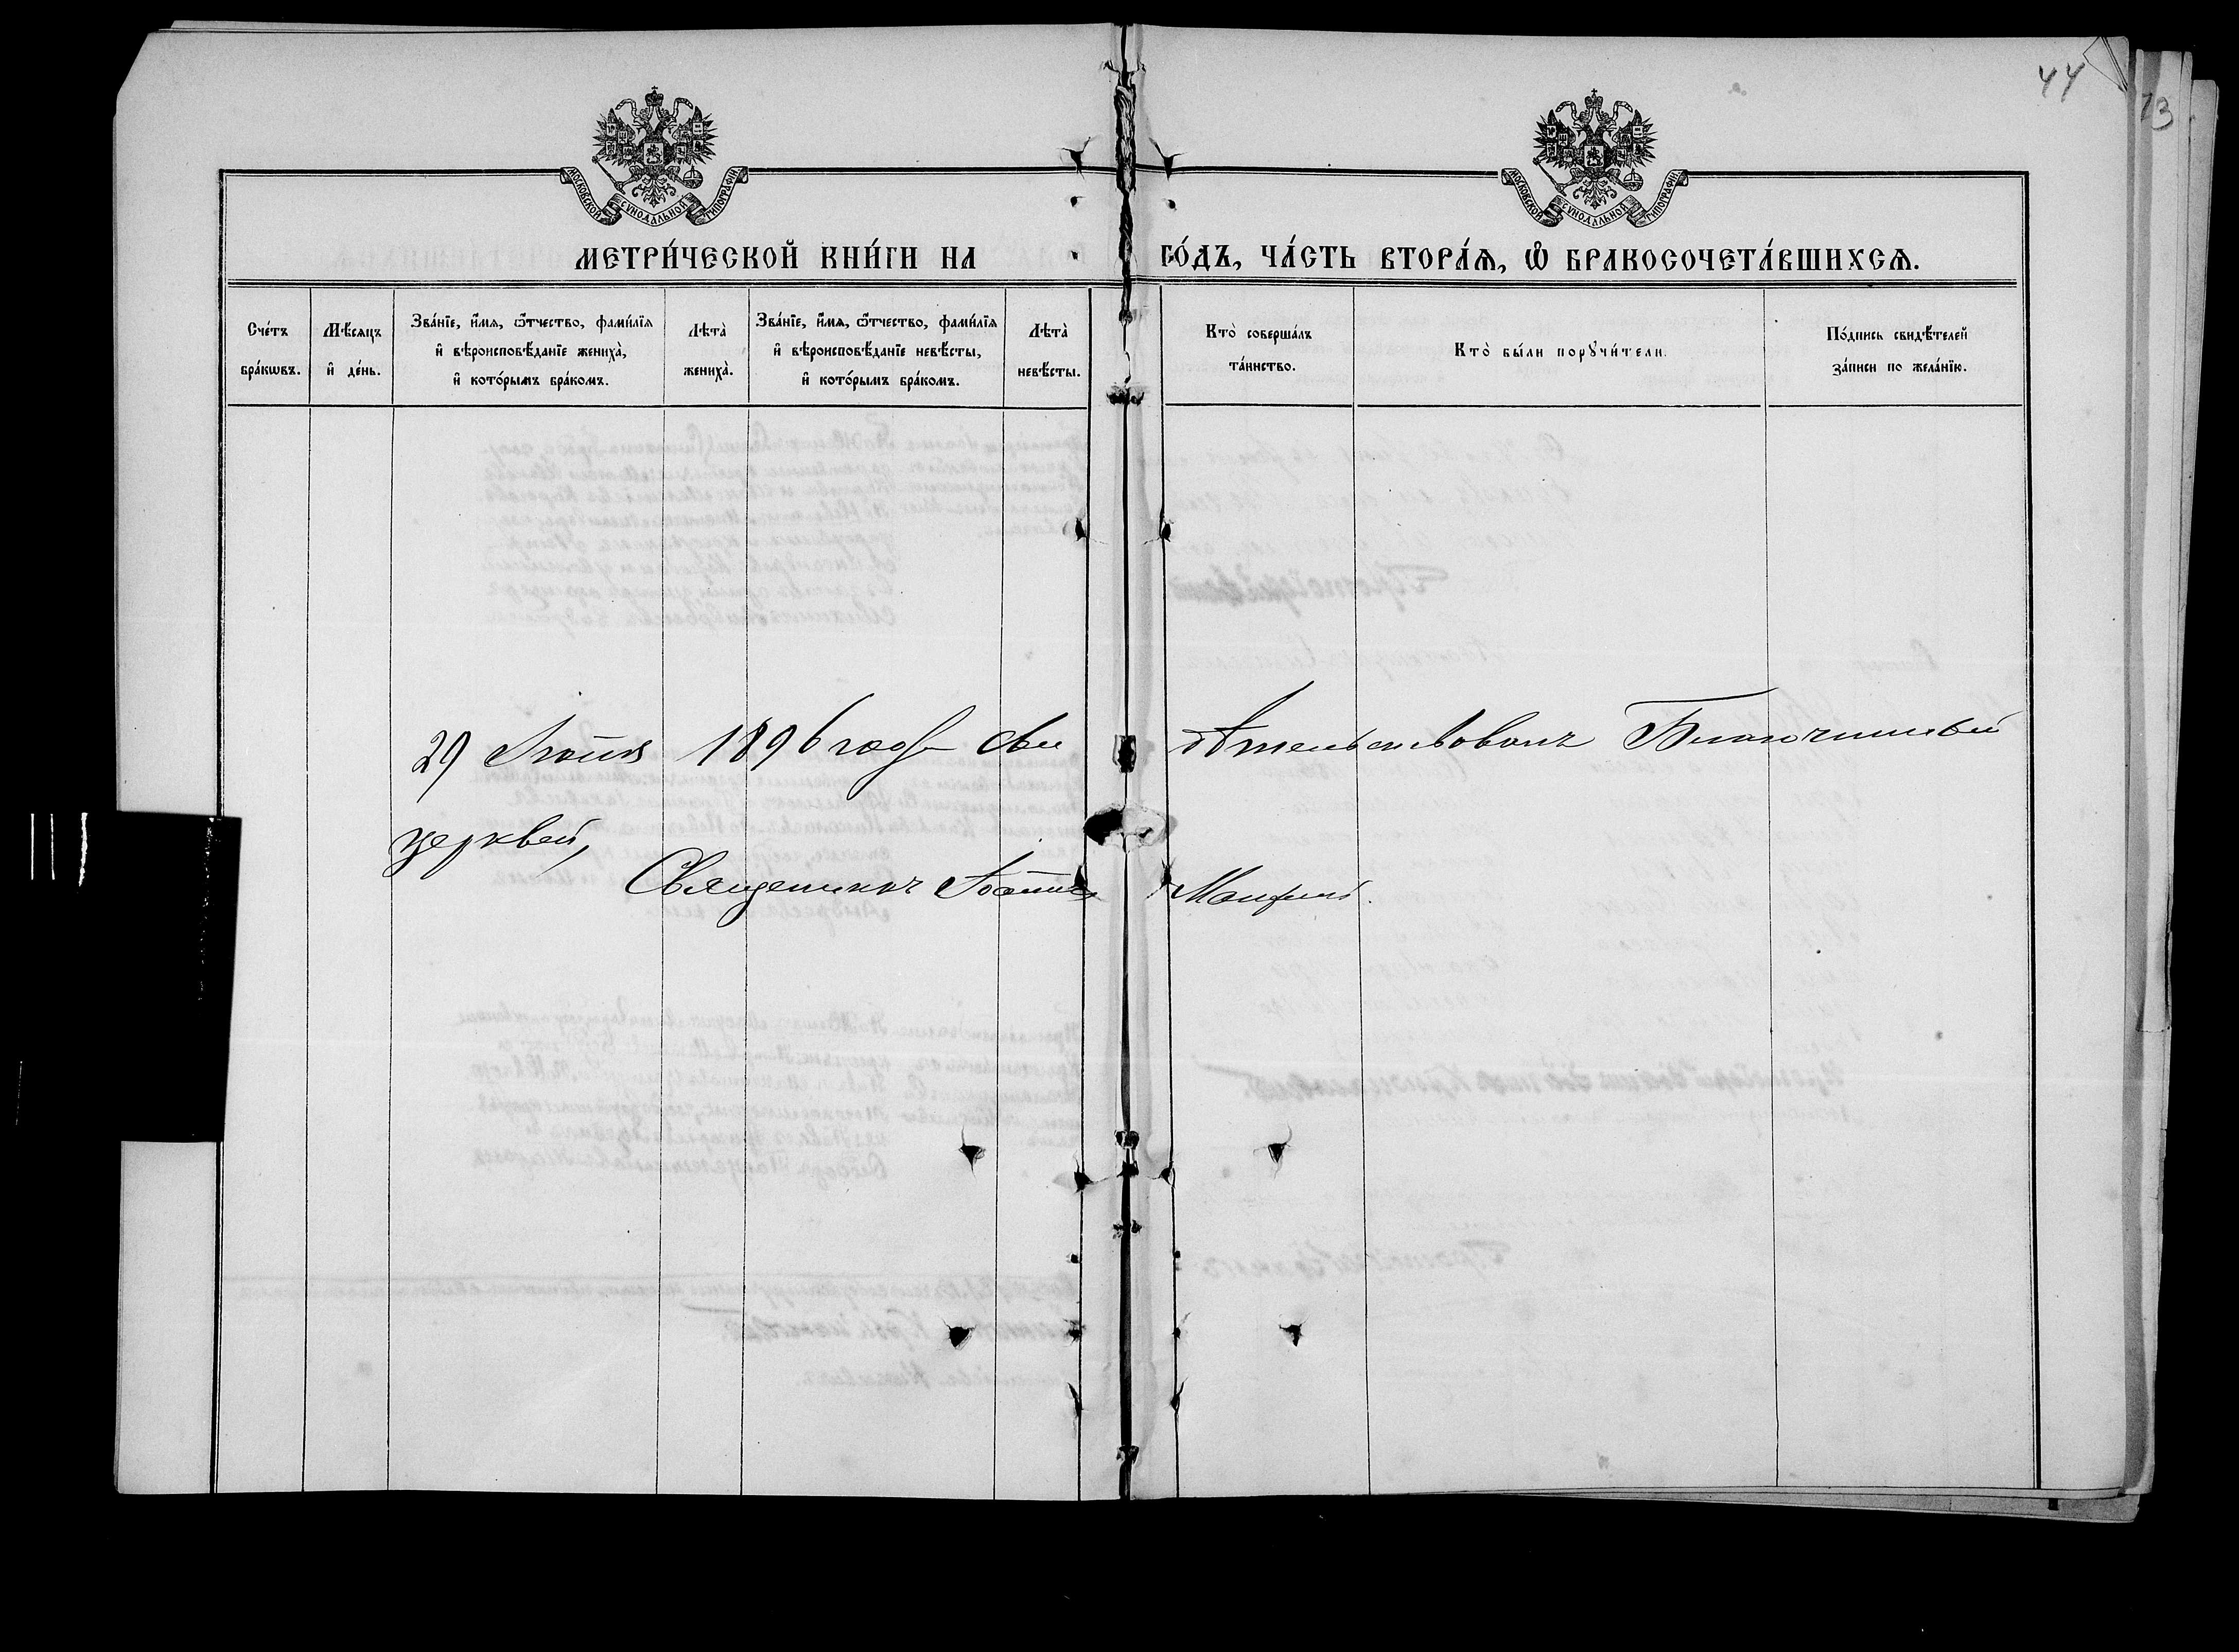 44
73
МОСКОВСКОЙ СѴНОДАЛЬНОЙ ТИПОГРАФІИ
МОСКОВСКОЙ СѴНОДАЛЬНОЙ ТИПОГРАФІИ
МЕТРИ́ЧЕСКОЙ КНИ́ГИ НА ГО́ДЪ, ЧА́СТЬ ВТОРА́Ѧ, Ѽ БРАКОСОЧЕТА́ВШИХСѦ.
Сче́тъ бра́кѡвъ.
Мѣ́сяцъ и҆ де́нь.
Зва́нїе, и҆́мя, ѻ҆́тчество, фами́лїя и҆ вѣроисповѣ́данїе жениха̀, и҆ кото́рымъ бра́комъ.
Лѣта̀ жениха̀.
Зва́нїе, и҆́мя, ѻ҆́тчество, фами́лїя и҆ вѣроисповѣ́данїе невѣ́сты, и҆ кото́рымъ бра́комъ.
Лѣта̀ невѣ́сты.
Кто̀ соверша́лъ та́инство.
Кто̀ бы́ли порꙋчи́тели.
По́дпись свидѣ́телей за́писи по жела́нїю.
29 Іюня 1896 года Свидѣтельствовалъ Благочинный
церквей,
Священникъ Іоаннъ